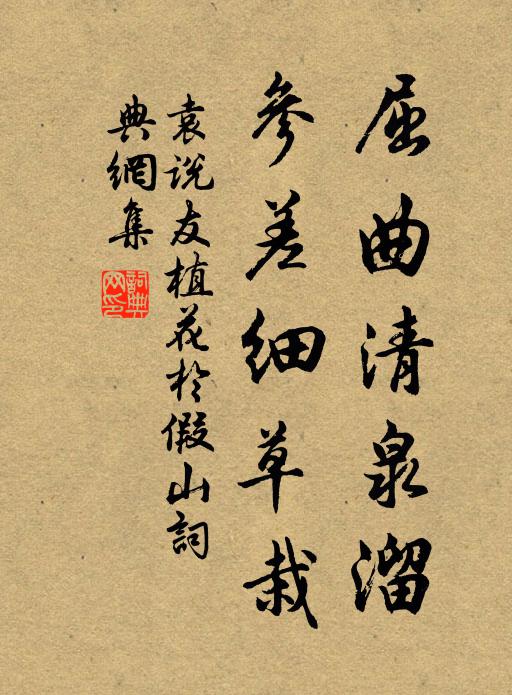 屈曲清泉溜
參差細草栽
袁說友植花於假山詞
典網集
詞典
网印